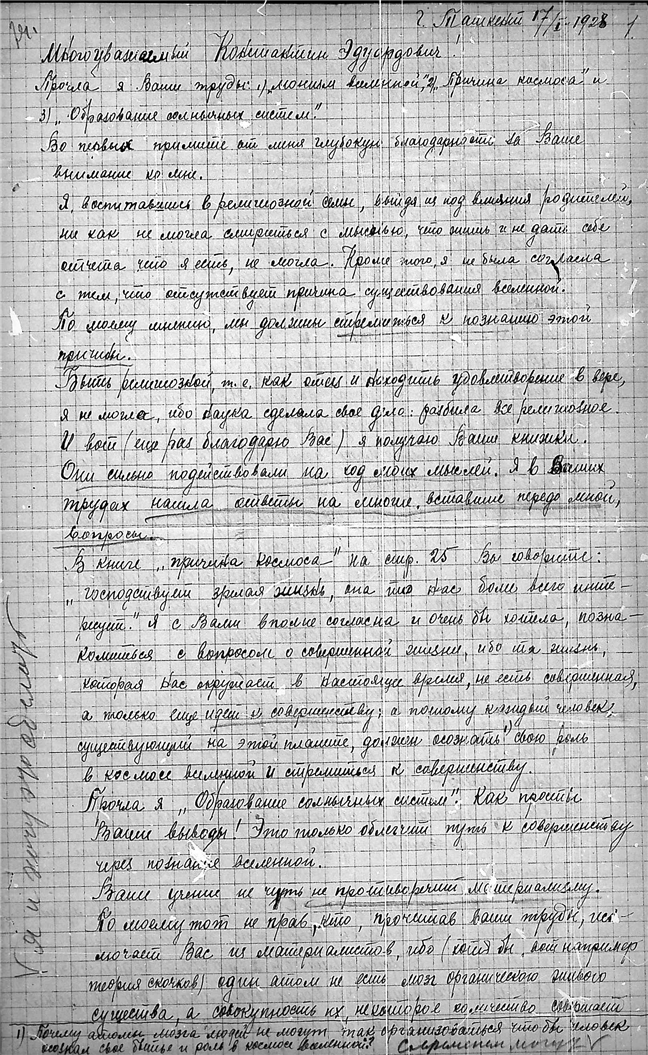 г. Ташкент 17/I-1928 1
Многоуважаемый Константин Эдуардович!
Прочла я Ваши труды: 1) „Монизм вселенной", 2) „Причина космоса" и
3) „Образование солнычных систем".
Во первых примите от меня глубокую благодарность за Ваше
внимание ко мне.
Я, воспитавшись в религиозной семье, выйдя из под влияния родителей,
ни как не могла смириться с мыслью, что жить и не дать себе
отчета что я есть, не могла. Кроме того, я не была согласна
с тем, что отсутствует причина существования вселенной.
По моему мнению, мы должны стремиться к познанию этой
причины.
Быть религиозной, т.е. как отец и находить удовлетворение в вере,
я не могла, ибо наука сделала свое дело: разбила все религиозное.
И вот (еще раз благодарю Вас) я получаю Ваши книжки.
Они сильно подействовали на ход моих мыслей. Я в Ваших
трудах нашла ответы на многие, вставшие передо мной,
вопросы.
В книге „причина космоса" на стр. 25 Вы говорите:
„господствует зрелая жизнь, она то нас более всего инте-
ресует." Я с Вами вполне согласна и очень бы хотела, позна-
комиться с вопросом о совершенной жизни, ибо та жизнь,
которая нас окружает в настоящее время, не есть совершенная,
а только еще идет к совершенству; а потому каждый человек,
существующий на этой планете, должен осознать 1) свою роль
в космосе вселенной и стремиться к совершенству.
Прочла я „Образование солнычных систем". Как просты
Ваши выводы! Это только облегчит путь к совершенству
через познание вселенной.
Ваше учение не чуть не противоречит материализму.
По моему тот не прав, кто, прочитав ваши труды, иск-
лючает Вас из материалистов, ибо (хотя бы, вот например
теория скачков) один атом не есть мозг органического живого
существа, а совокупность их, некоторое количество совершает
1) Почему атомы мозга людей не могут так организоваться что бы человек
осознал свое бытье и роль в космосе вселенной?
V я и хочу это сделать